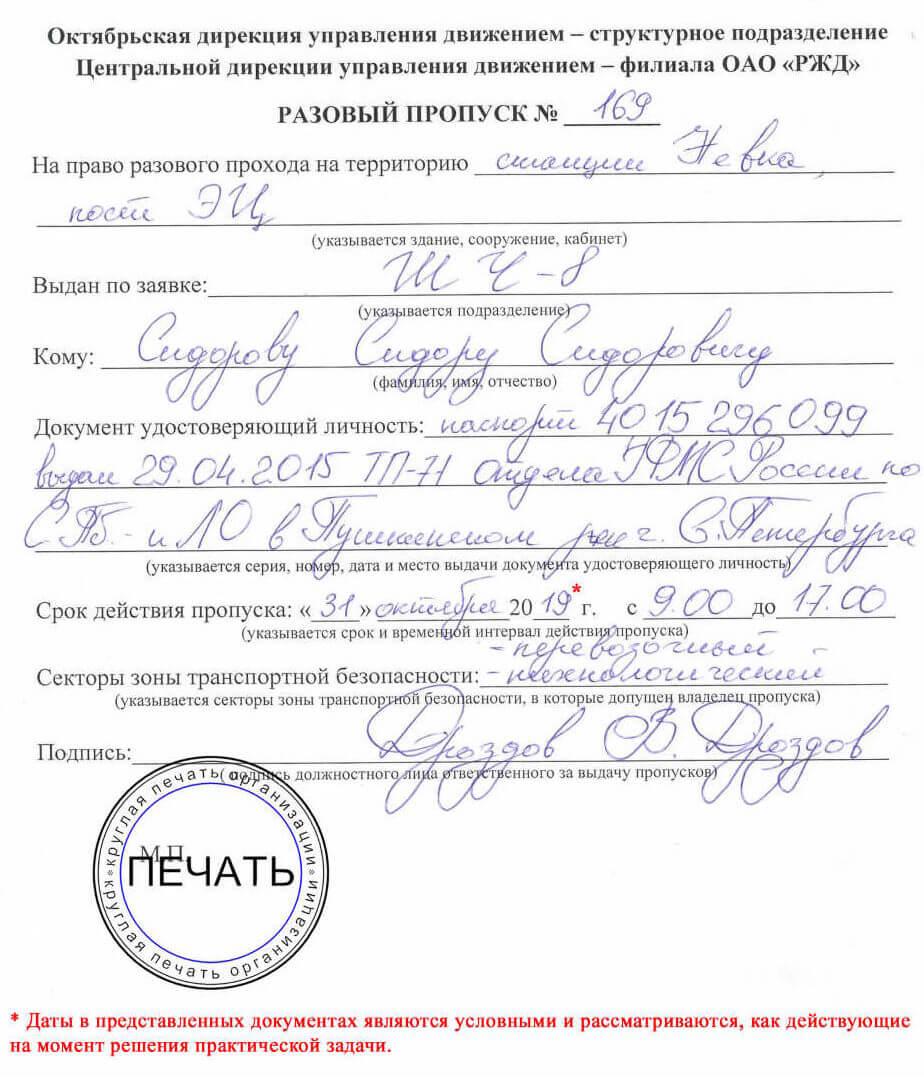 Октябрьская дирекция управления движением – структурное подразделение
Центральной дирекции управления движением – филиала ОАО «РЖД»
РАЗОВЫЙ ПРОПУСК № 169
На право разового прохода на территорию станции Невка,
пост ЭЦ
(указывается здание, сооружение, кабинет)
Выдан по заявке: ШЧ-8
(указывается подразделение)
Кому: Сидорову Сидору Сидоровичу
(фамилия, имя, отчество)
Документ удостоверяющий личность: паспорт 4015 296099
выдан 29.04.2015 ТП-71 отдела УФМС России по
СПб.- и ЛО в Пушкинском р-не г. С.Петербурга
(указывается серия, номер, дата и место выдачи документа удостоверяющего личность)
Срок действия пропуска: «31» октября 2019* г. с 9.00 до 17.00
(указывается срок и временной интервал действия пропуска)
- перевозочный
Секторы зоны транспортной безопасности: - технологический
(указывается секторы зоны транспортной безопасности, в которые допущен владелец пропуска)
Подпись: Дроздов В. Дроздов
( подпись должностного лица ответственного за выдачу пропусков)
М.П.
ПЕЧАТЬ
круглая печать организации
круглая печать организации
* Даты в представленных документах являются условными и рассматриваются, как действующие
на момент решения практической задачи.